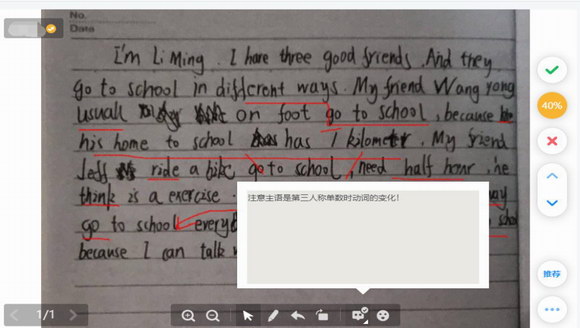 No.
Data
I'm Li Ming. I have three good friends. And they
go to school in different ways. My friend Wang yong
usuall on foot go to school, because
his home to school has 1 kilometr. My friend
Jeff ride a bike go to school, need half hour. he
think is a exercise. way
go to school every
because I can talk
注意主语是第三人称单数时动词的变化!
40%
推荐
1/1